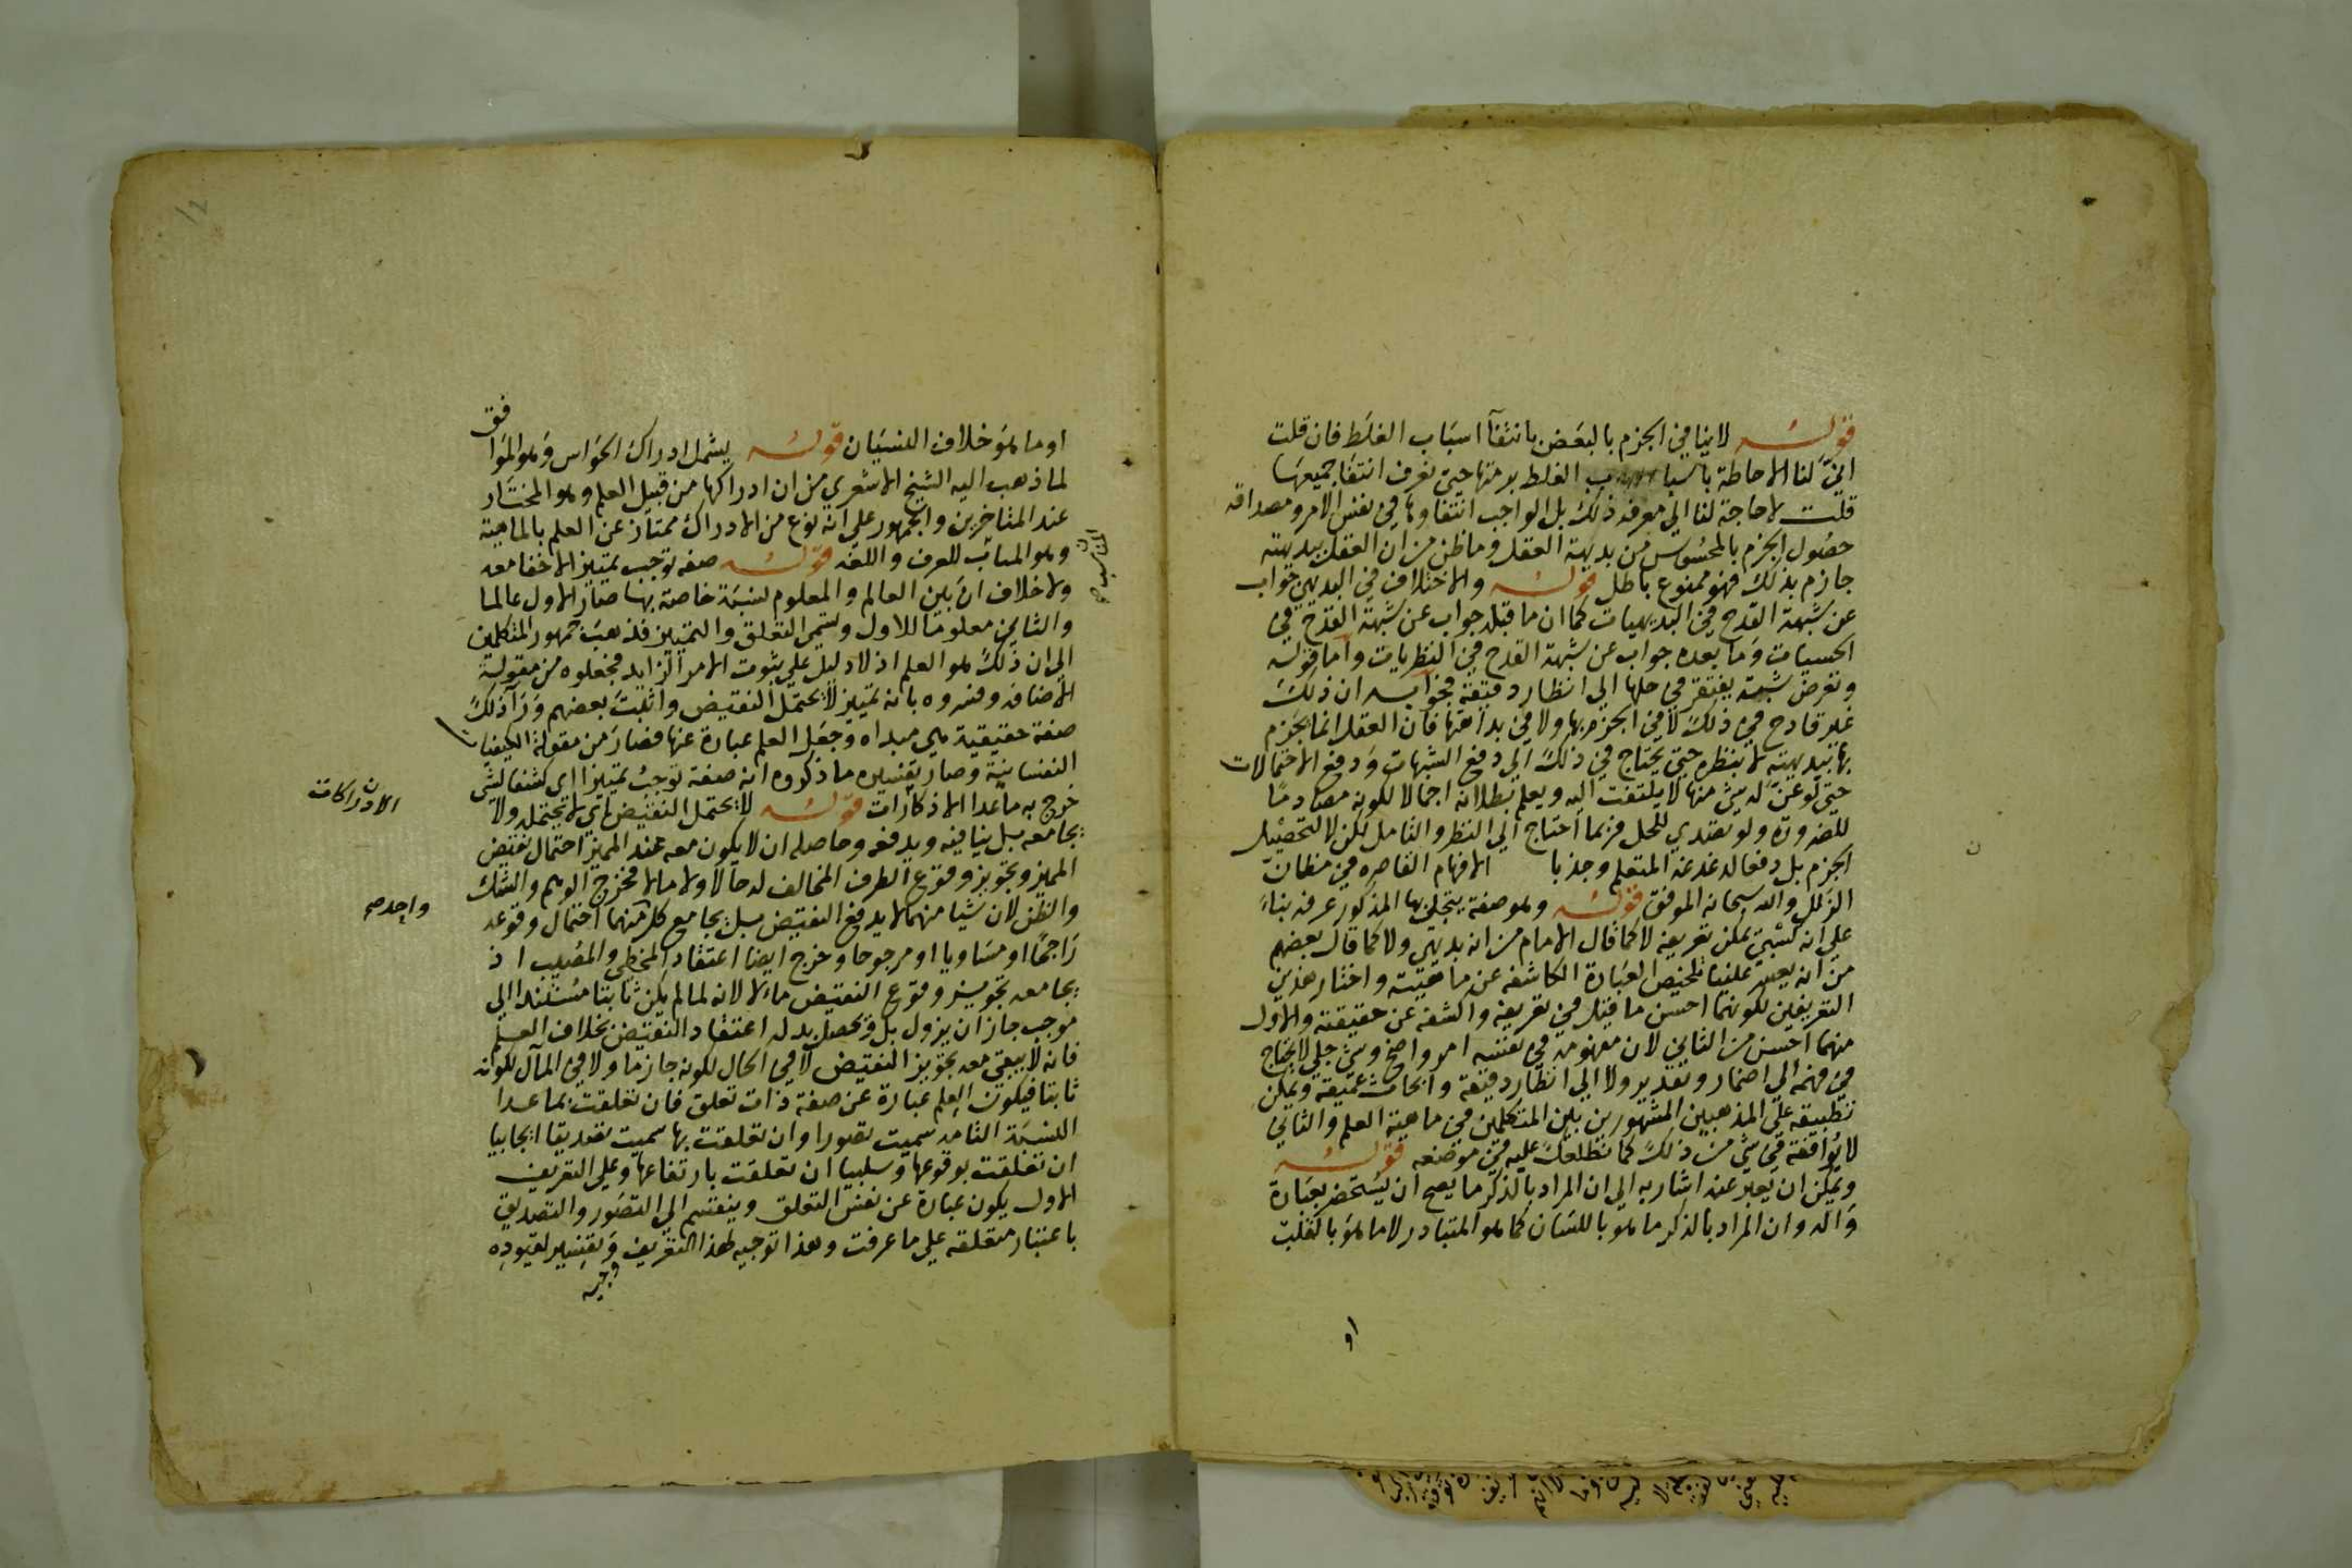 قوله لا ينافي الجزم بالبعض بانتفآ اسباب الغلط فان قلت
انيّ لنا الاحاطة باسباب الغلط برمتها حتى نعرف انتفا جميعها
قلت لا حاجة لنا الي معرفة ذلك بل الواجب انتفاوها في نفس الامر ومصداقه
حصول الجزم بالمحسوس من بديهة العقل وما ظن من ان العقل ببديهته
جازم بذلك فهو ممنوع باطل قوله والاختلاف في البديهي جواب
عن شبهة القدح في البديهيات كما ان ما قبله جواب عن شبهة القدح في
الحسيات وما بعده جواب عن شبهة القدح في النظريات واما قوله
وتعرض شبهة يفتقر في حلها الي انظار دقيقة فجوابه ان ذلك
غير قادح في ذلك لا في الجزم بها ولا في بداهتها فان العقل انما يجزم
بها ببديهته لا بنظره حتي يحتاج في ذلك الي دفع الشبهات ودفع الاحتمالات
حتي لو عنّ له شي منها لا يلتفت اليه ويعلم بطلانه اجمالا لكونه مصادما
للضرورة ولو تصدي للحل فربما احتاج الي النظر والتامل لكن لا لتحصيل
الجزم بل دفعا لدغدغة المتعلم وجذبا الافهام القاصره في مظان
الزلل والله سبحانه الموفق قوله وهو صفة يتجلي بها المذكور عرفه بناءً
علي انه كسبي يمكن تعريفه لا كما قال الامام من انه بديهي ولا كما قال بعضهم
من انه يعسر علينا تلخيص العبارة الكاشفه عن ماهيته واختار هذين
التعريفين لكونهما احسن ما قيل في تعريفه والكشف عن حقيقته والاول
منهما احسن من الثاني لان مفهومه في نفسه امر واضح وشي جلي لا يحتاج
في فهمه الي اضمار وتقدير ولا الي انظار دقيقة وابحاث عميقة ويمكن
تطبيقه علي المذهبين المشهورين بين المتكلمين في ماهية العلم والثاني
لا يوافقه في شي من ذلك كما نطلعك عليه في موضعه قوله
ويمكن ان يعبر عنه اشار به الي ان المراد بالذكر ما يصح ان يستحضر بعبارة
والّه وان المراد بالذكر ما هو باللسان كما هو المتبادر لا ما هو بالقلب
او
او ما هو خلاف النسيان قوله يشمل ادراك الحواس وهو الموا
فق
لما ذهب اليه الشيخ الاشعري من ان ادراكها من قبيل العلم وهو المختار
عند المتاخرين والجمهور علي انه نوع من الادراك ممتاز عن العلم بالماهية
وهو المناسب للعرف واللغه قوله صفة توجب تمييز الاخفا معه
المناسب
ولا خلاف ان بين العالم والمعلوم نسبة خاصة بها صار الاول عالما
والثاني معلوما للاول وتسمي التعلق والتمييز فذهب جمهور المتكلمين
الي ان ذلك هو العلم اذ لا دليل علي ثبوت الامر الزايد فجعلوه من مقولة
الاضافه وفسروه بانه تمييز لا يحتمل النقيض واثبت بعضهم ورآ ذلك
صفة حقيقية هي مبداه وجعل العلم عبارة عنها فصار من مقولة الكيفيات
النفسانية وصار تفسيره ما ذكروه انه صفة توجب تمييزا اي كشفا لشي
خرج به ما عدا الاذكارات قوله لا يحتمل النقيض اي لا يحتمله ولا
الادراكات
يجامعه بل ينافيه ويدفعه وحاصله ان لا يكون معه عند المميز احتمال نقيض
المميز وتجويز وقوع الطرف المخالف له حالا ولا مالا فخرج الوهم والشك
والظن لان شيا منهما لا يدفع النقيض بل يجامع كل منهما احتمال وقوعه
واحد صح
راجحا او مساويا او مرجوحا وخرج ايضا اعتقاد المخطي والمصيب اذ
يجامعه تجويز وقوع النقيض مالا لانه لما لم يكن ثابتا مستندا الي
موجب جاز ان يزول بل ويحصل بدله اعتقاد النقيض بخلاف العلم
فانه لا يبقي معه تجويز النقيض لا في الحال لكونه جازما ولا في المآل لكونه
ثابتا فيكون العلم عبارة عن صفة ذات تعلق فان تعلقت بما عدا
النسبة التامه سميت تصورا وان تعلقت بها سميت تصديقا ايجابيا
ان تعلقت بوقوعها وسلبيا ان تعلقت بارتفاعها وعلي التعريف
الاول يكون عبارة عن نفس التعلق وينقسم الي التصور والتصديق
باعتبار متعلقه علي ما عرفت وهذا توجيه لهذا التعريف وتفسير لقيوده
وجيه